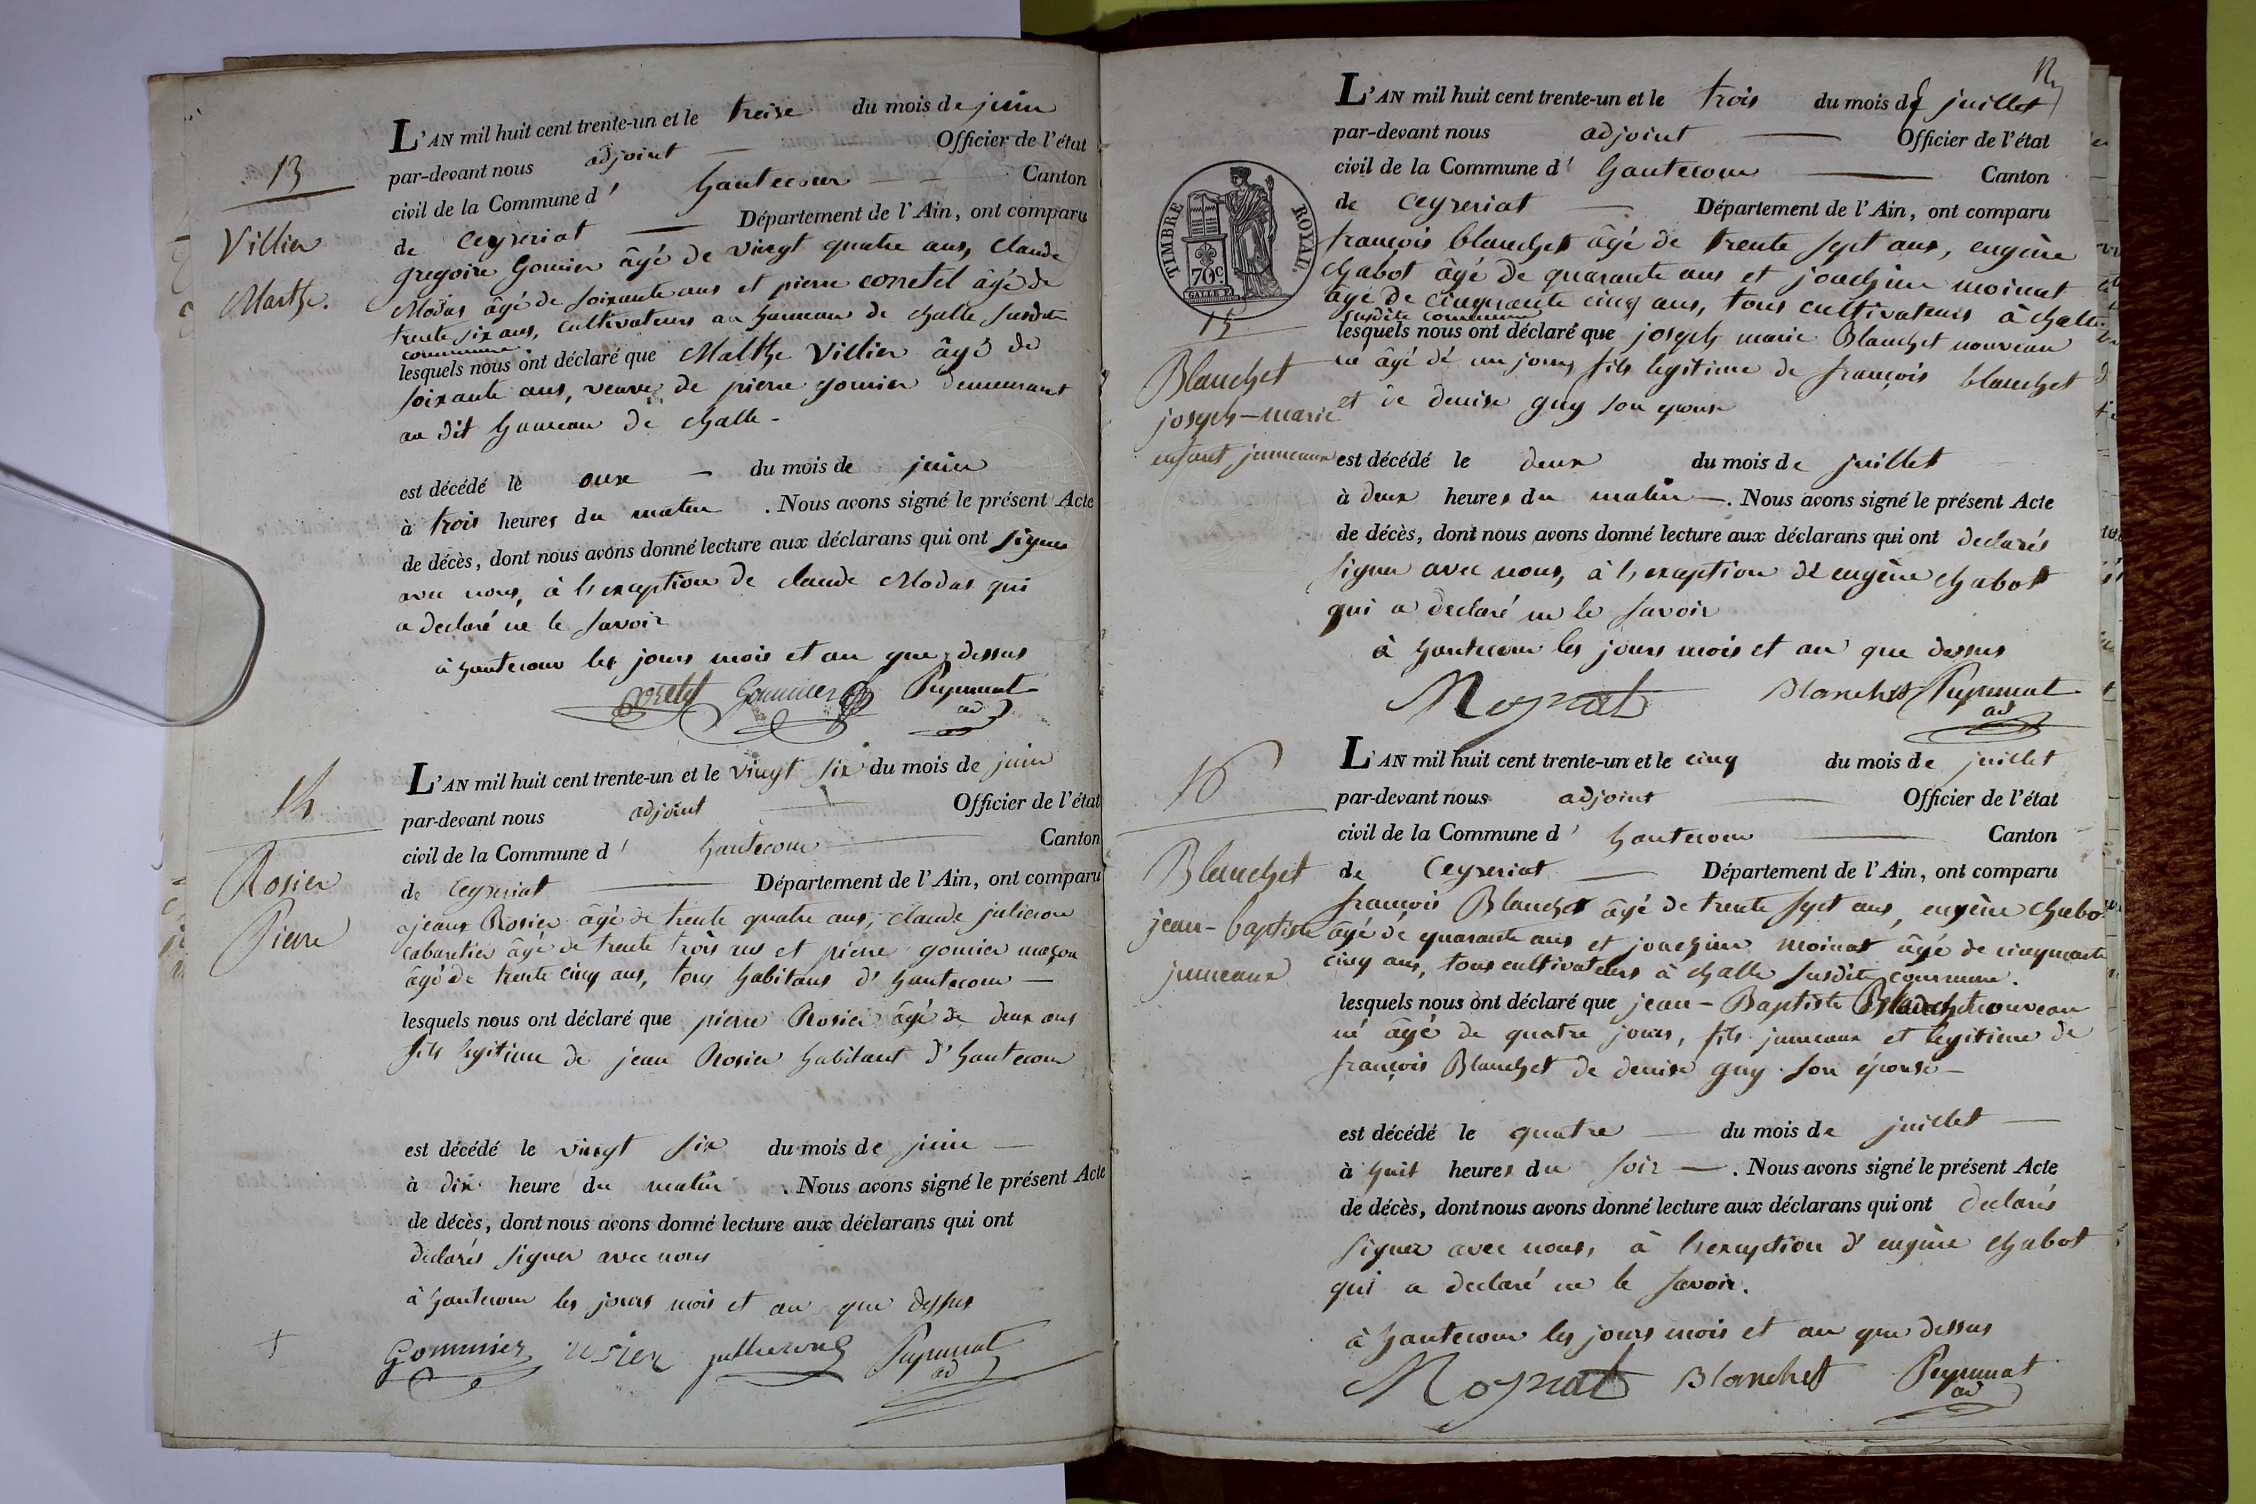 13
Villier
Marthe.
L'AN mil huit cent trente-un et le treise du mois de juin
par-devant nous adjoint — Officier de l'état
civil de la Commune d' hautecour — Canton
de Ceyseriat — Département de l'Ain, ont comparu
gregoire Gomier âgé de vingt quatre ans, Claude
Modas âgé de soixante ans et pierre convtel âgé de
trente six ans, cultivateurs au hameau de challe susdite
commune
lesquels nous ont déclaré que Malthe Villier âgé de
soixante ans, veuve de pierre gomier demeurant
au dit hameau de challe -
est décédé le onze — du mois de juin
à trois heures du matin . Nous avons signé le présent Acte
de décès, dont nous avons donné lecture aux déclarans qui ont signer
avec nous, à l'exception de claude Modas qui
a declaré ne le savoir
à hautecour les jours mois et an que dessus
Gommier Peysernat
ad
14
Rosier
Pierre
L'AN mil huit cent trente-un et le vingt six du mois de juin
par-devant nous adjoint — Officier de l'état
civil de la Commune d' hautecour — Canton
de Ceyseriat — Département de l'Ain, ont comparu
jean Rosier âgé de trente quatre ans, Claude julieron
cabaretier âgé de trente trois ans et pierre gomier maçon
âgé de trente cinq ans, tous habitans d'hautecour —
lesquels nous ont déclaré que pierre Rosier âgé de deux ans
fils legitime de jean Rosier habitant d'hautecour
est décédé le vingt six du mois de juin —
à dix heure du matin . Nous avons signé le présent Acte
de décès, dont nous avons donné lecture aux déclarans qui ont
declarés signer avec nous
à hautecour les jours mois et an que dessus
+
Gommier rosier
ad
12
TIMBRE ROYAL.
70c
L'AN mil huit cent trente-un et le trois du mois de juillet
par-devant nous adjoint — Officier de l'état
civil de la Commune d' hautecour — Canton
de Ceyseriat — Département de l'Ain, ont comparu
françois blanchet âgé de trente sept ans, eugène
chabot âgé de quarante ans et joachim moinat
âgé de cinquante cinq ans, tous cultivateurs à challe
susdite commune
15
Blanchet
joseph-marie
enfant jumeaux
lesquels nous ont déclaré que joseph marie Blanchet nouveau
né âgé de un jour, fils legitime de françois blanchet
et de denise guy son epouse
est décédé le deux du mois de juillet
à deux heures du matin —. Nous avons signé le présent Acte
de décès, dont nous avons donné lecture aux déclarans qui ont declarés
signer avec nous, à l'exception de eugène chabot
qui a declaré ne le savoir
à hautecour les jours mois et an que dessus
Moynat Blanchet
ad
16
Blanchet
jean-baptiste
jumeaux
L'AN mil huit cent trente-un et le cinq du mois de juillet
par-devant nous adjoint — Officier de l'état
civil de la Commune d' hautecour — Canton
de Ceyseriat — Département de l'Ain, ont comparu
françois Blanchet âgé de trente sept ans, eugène chabot
âgé de quarante ans et joachim moinat âgé de cinquante
cinq ans, tous cultivateurs à challe susdite commune.
lesquels nous ont déclaré que jean-Baptiste Blanchet nouveau
né âgé de quatre jours, fils jumeaux et legitime de
françois Blanchet de denise guy son épouse —
est décédé le quatre — du mois de juillet —
à huit heures du soir —. Nous avons signé le présent Acte
de décès, dont nous avons donné lecture aux déclarans qui ont declarés
signer avec nous, à l'exception d'eugène chabot
qui a declaré ne le savoir.
à hautecour les jours mois et an que dessus
Moynat Blanchet
ad